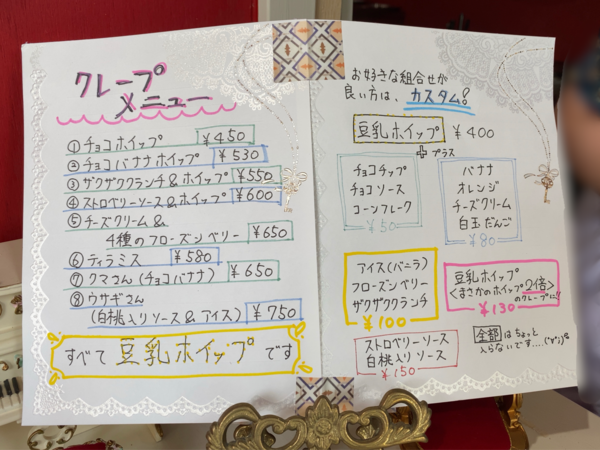 クレープ
メニュー
①チョコホイップ ￥450
②チョコバナナホイップ ￥530
③ザクザククランチ&ホイップ ￥550
④ストロベリーソース&ホイップ ￥600
⑤チーズクリーム&
4種のフローズンベリー ￥650
⑥ティラミス ￥580
⑦クマさん(チョコバナナ) ￥650
⑧ウサギさん
(白桃入りソース&アイス) ￥750
すべて豆乳ホイップです
お好きな組合せが
良い方は、カスタム!
豆乳ホイップ ￥400
＋プラス
チョコチップ
チョコソース
コーンフレーク
￥50
バナナ
オレンジ
チーズクリーム
白玉だんご
￥80
アイス(バニラ)
フローズンベリー
ザクザククランチ
￥100
豆乳ホイップ
<まさかのホイップ2倍>
のクレープに!!
￥130
ストロベリーソース
白桃入りソース
￥150
全部はちょっと
入らないです....(;'∀')